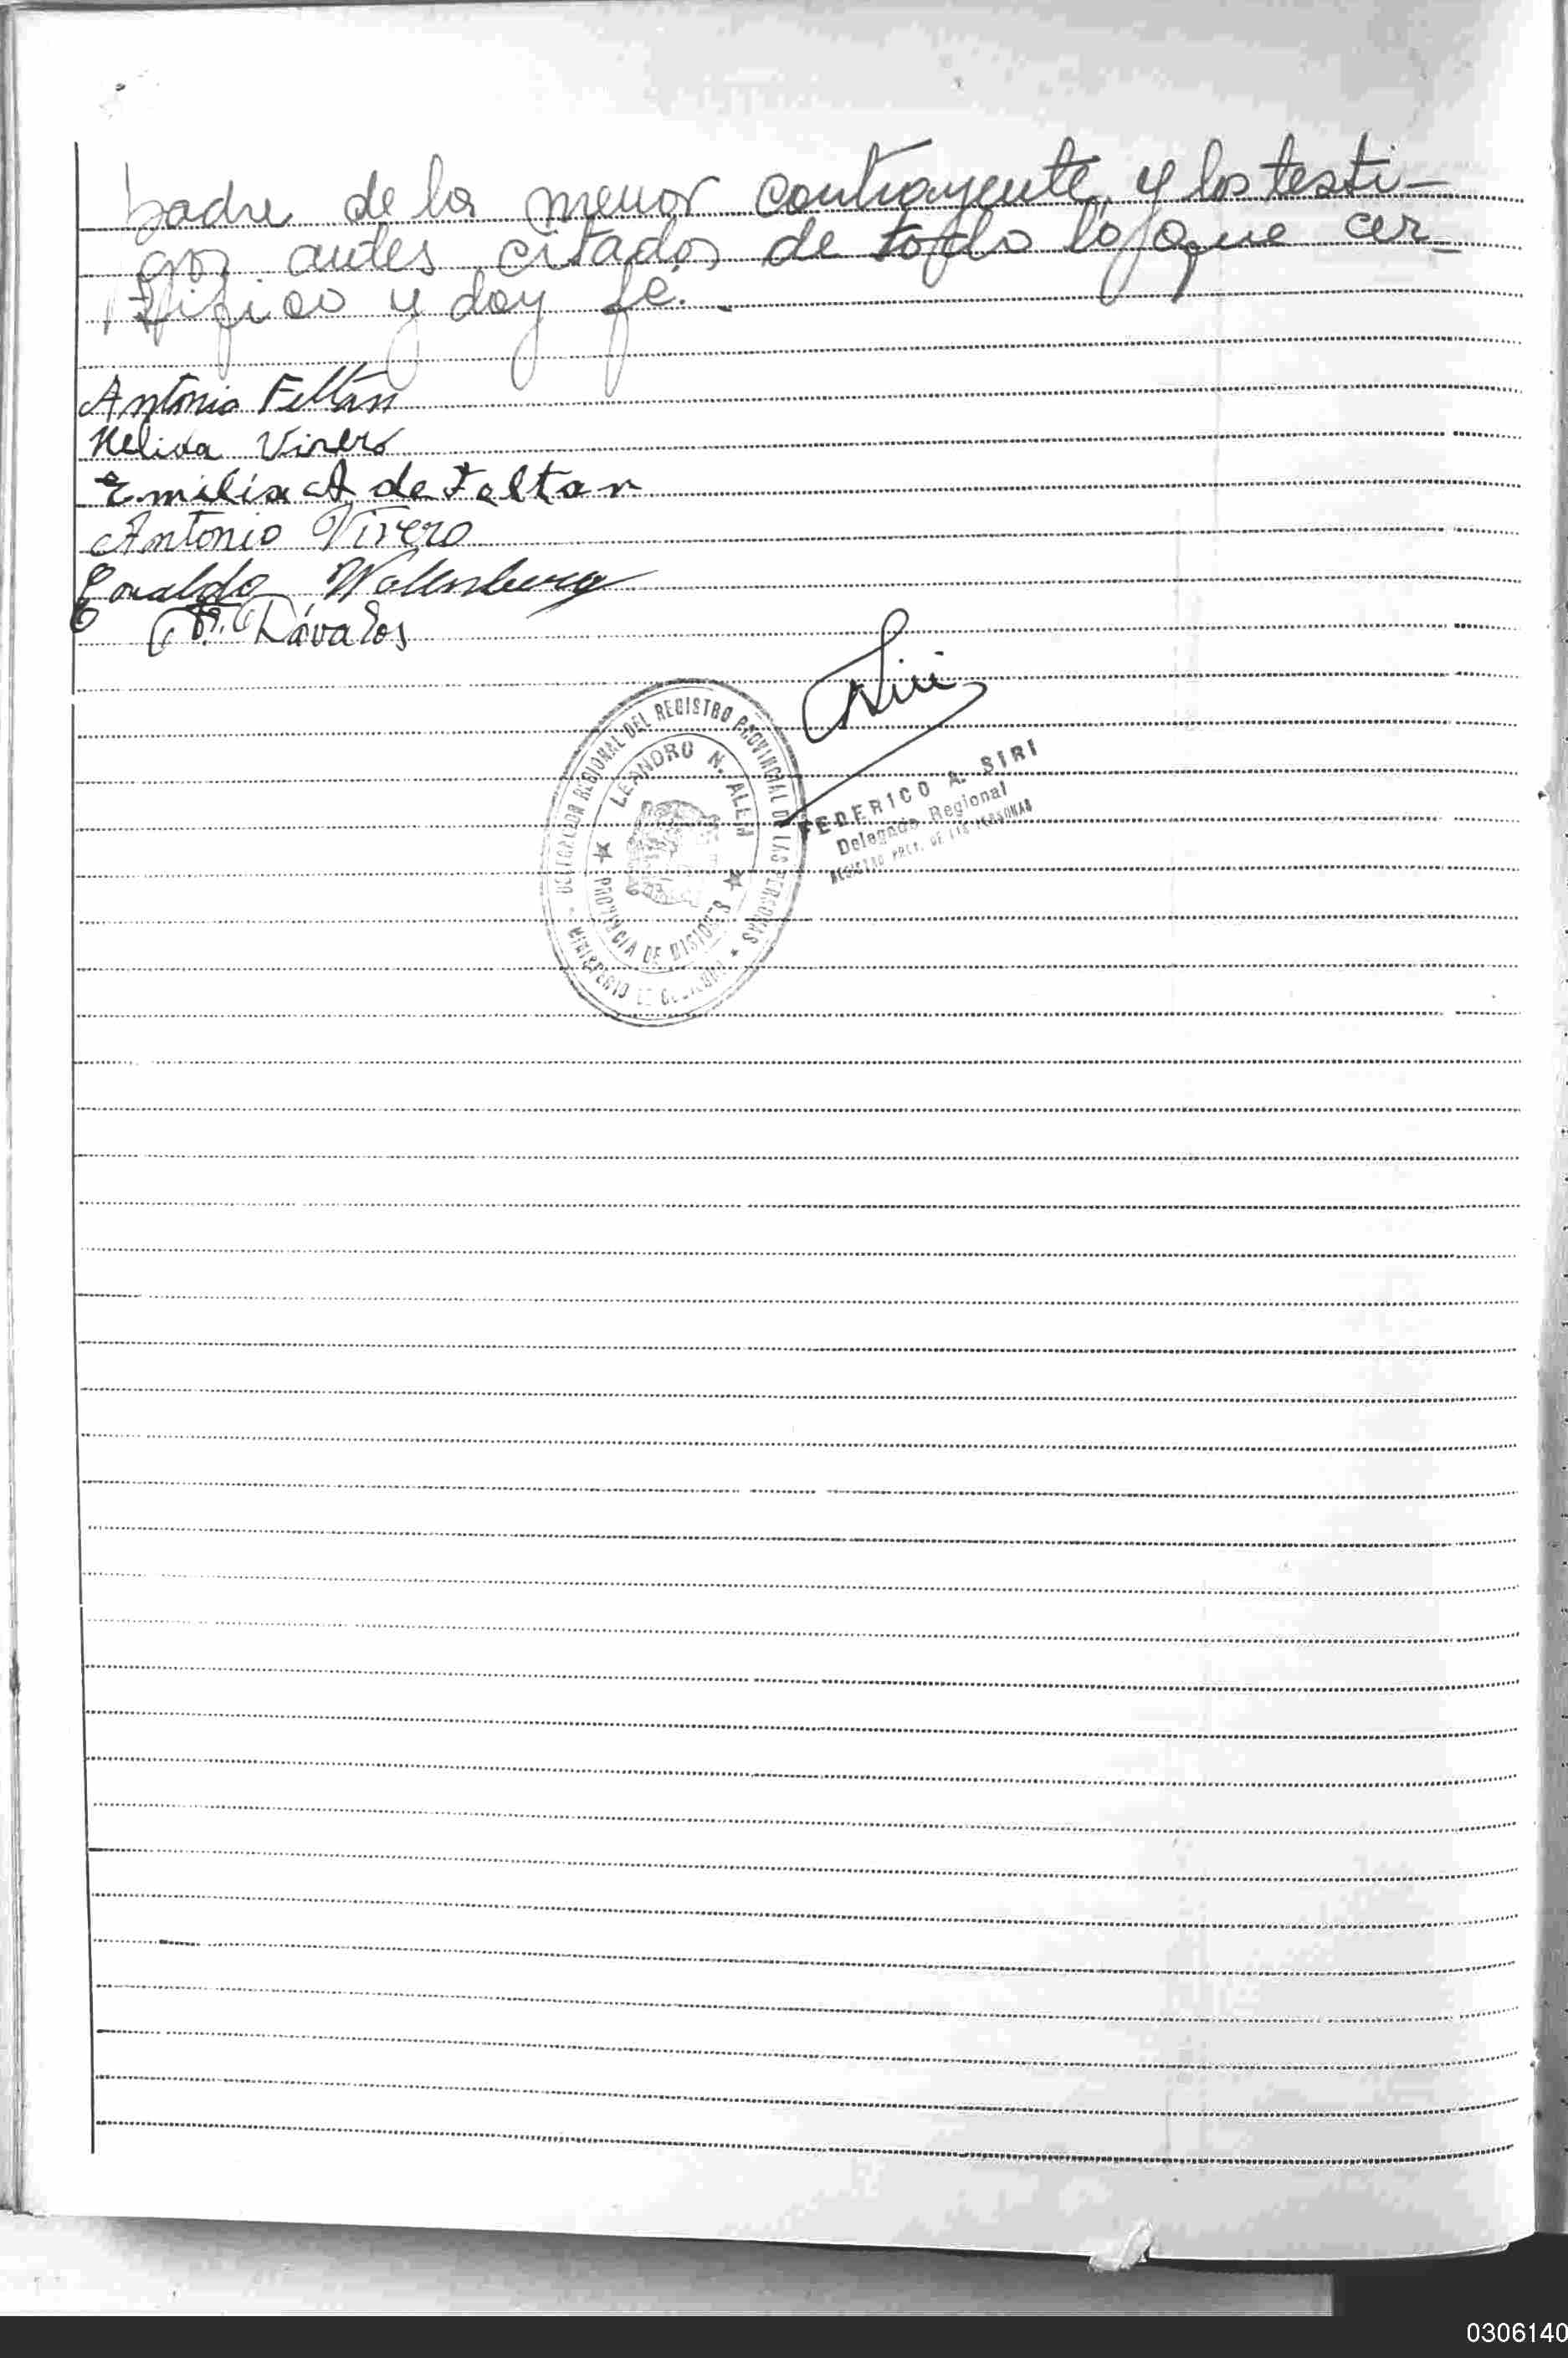 padre de la menor contrayente, y los testi-
gos antes citados de todo lo que cer-
tifico y doy fé.-
Antonio Feltan
Nelida Vivero
Emilia A de Feltan
Antonio Vivero
Wallenburg
Dávalos
Siri
DELEGACION REGIONAL DEL REGISTRO PROVINCIAL DE LAS PERSONAS
LEANDRO N. ALEM
PROVINCIA DE MISIONES
MINISTERIO DE GOBIERNO
FEDERICO A. SIRI
Delegado Regional
REGISTRO PROV. DE LAS PERSONAS
0306140